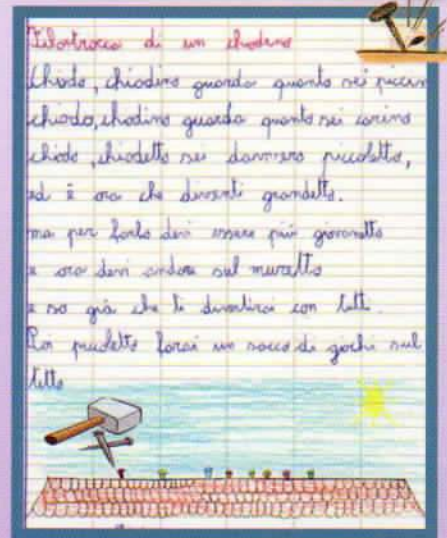 Filastrocca di un chiodino
Chiodo, chiodino guarda quanto sei piccino
chiodo, chiodino guarda quanto sei carino
chiodo, chiodetto sei davvero piccoletto,
ed è ora che diventi grandetto.
ma per farlo devi essere più giovanetto
e ora devi andare sul muretto
e so già che ti divertirai con tutti.
Poi piccoletto farai un sacco di giochi sul
tetto